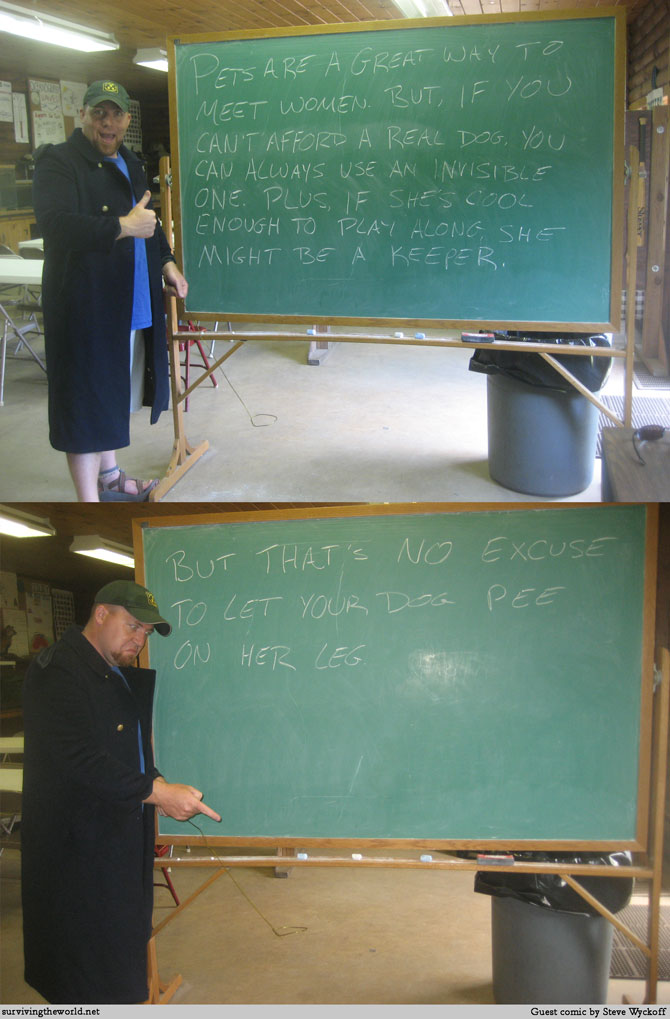 PETS ARE A GREAT WAY TO
MEET WOMEN. BUT, IF YOU
CAN'T AFFORD A REAL DOG, YOU
CAN ALWAYS USE AN INVISIBLE
ONE. PLUS, IF SHE'S COOL
ENOUGH TO PLAY ALONG SHE
MIGHT BE A KEEPER.
BUT THAT'S NO EXCUSE
TO LET YOUR DOG PEE
ON HER LEG.
survivingtheworld.net
Guest comic by Steve Wyckoff